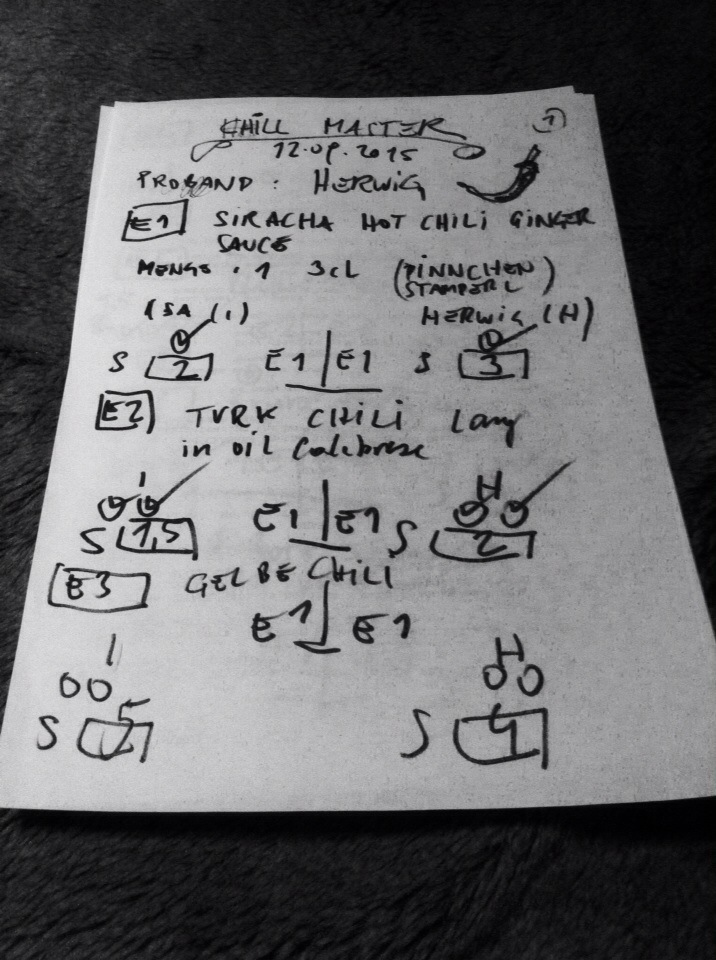 CHILL MASTER 1
12.09.2015
PROBAND : HERWIG
E1 SIRACHA HOT CHILI GINGER
SAUCE
MENGE : 1 3cL (PINNCHEN
STAMPERL)
ISA (I) HERWIG (H)
S 2 E1 | E1 S 3
E2 TURK CHILI Lang
in oil Calabrese
I H
S 1,5 E1 | E1 S 2
E3 GELBE CHILI
E1 | E1
I H
S S 4